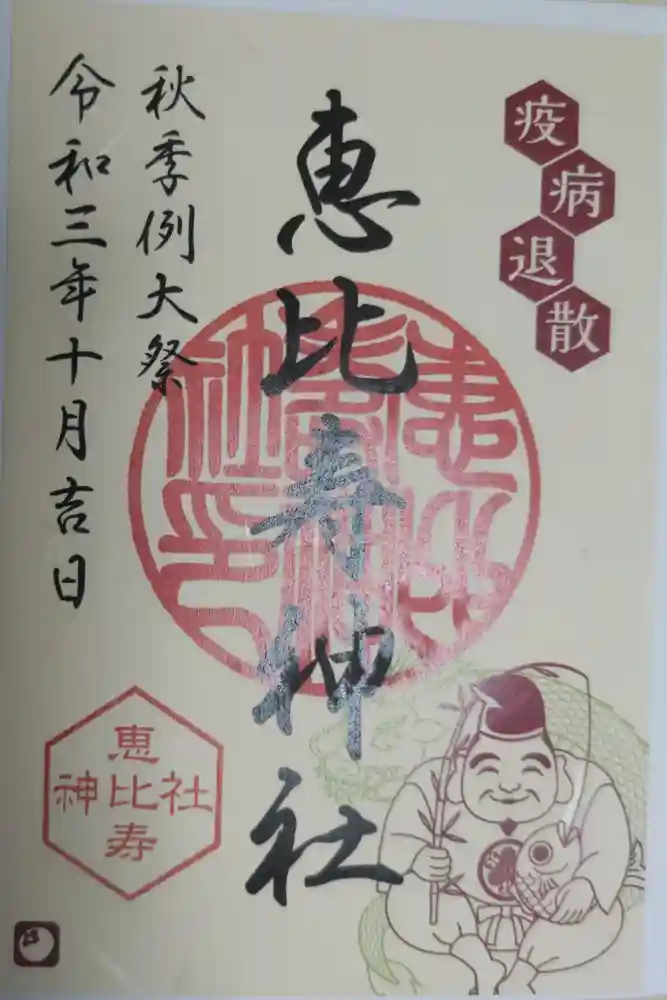 疫病退散
恵比寿神社
秋季例大祭
令和三年十月吉日
恵比寿
神比社